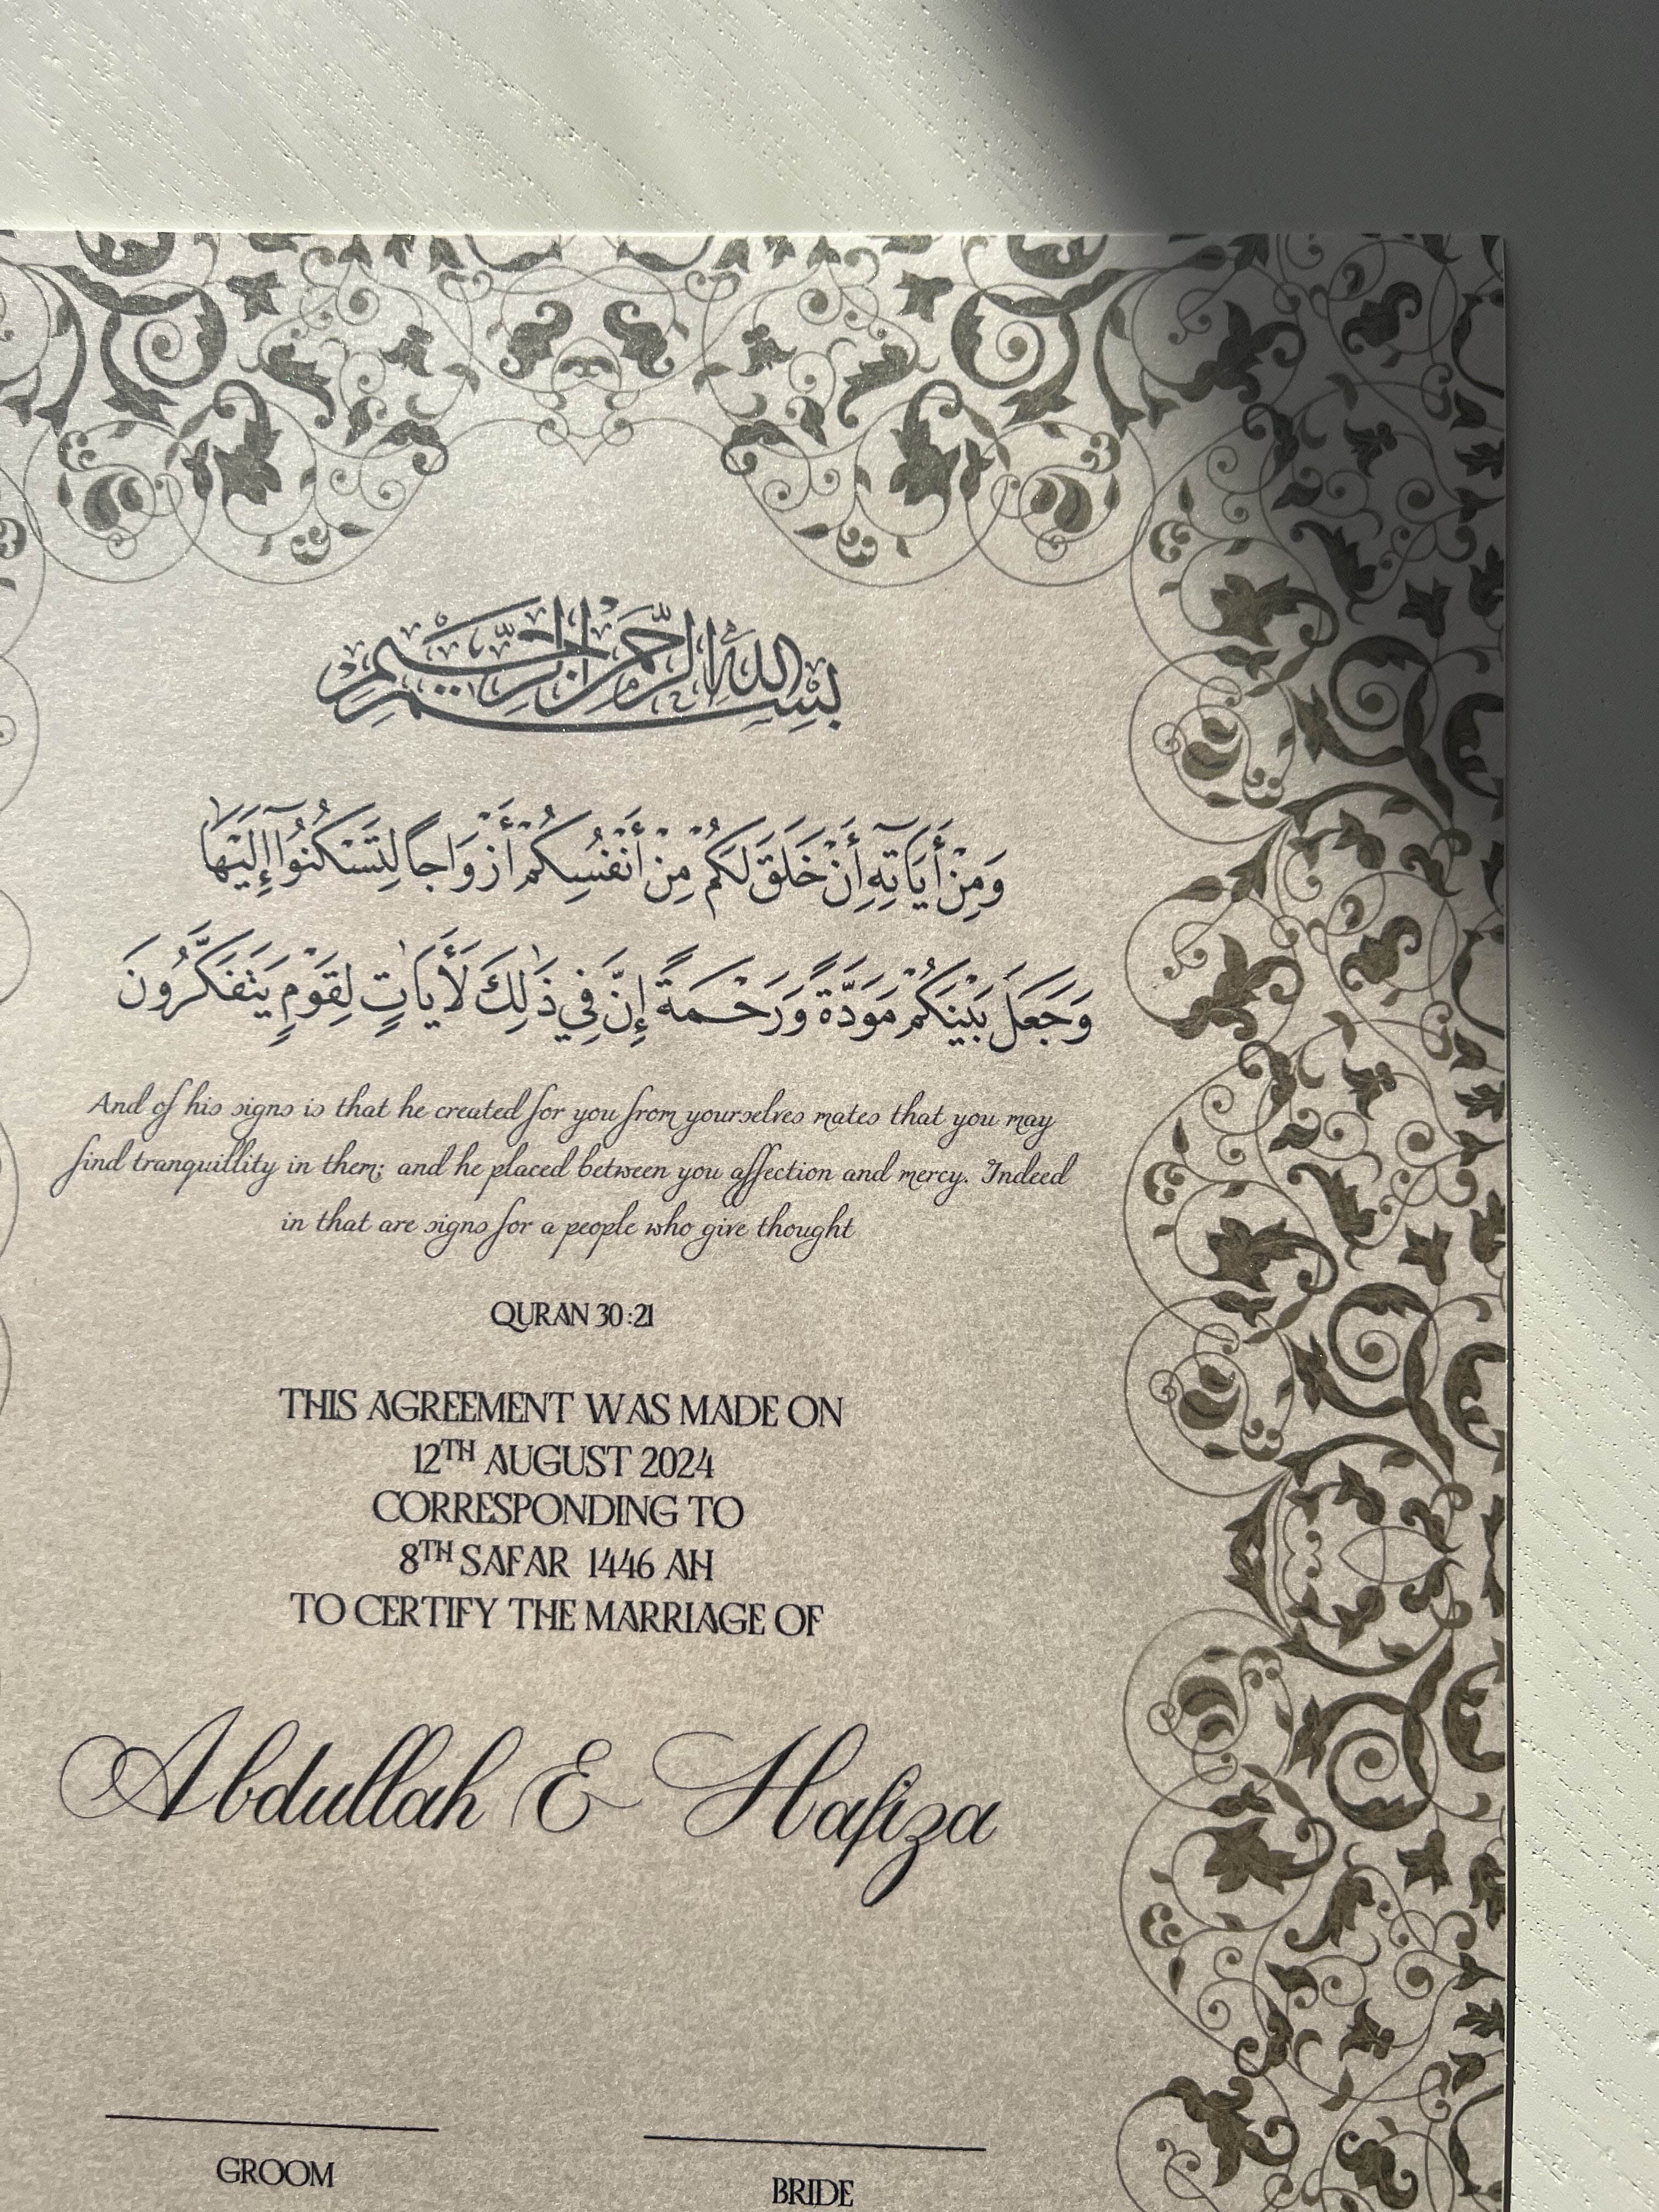 بسم الله الرحمن الرحيم
وَمِنْ أَيَاتِهِ أَنْ خَلَقَ لَكُمْ مِنْ أَنْفُسِكُمْ أَزْوَاجاً لِتَسْكُنُوا إِلَيْهَا
وَجَعَلَ بَيْنَكُمْ مَوَدَّةً وَرَحْمَةً إِنَّ فِي ذَلِكَ لَأَيَاتٍ لِقَوْمٍ يَتَفَكَّرُونَ
And of his signs is that he created for you from yourselves mates that you may
find tranquillity in them; and he placed between you affection and mercy. Indeed
in that are signs for a people who give thought
QURAN 30:21
THIS AGREEMENT WAS MADE ON
12TH AUGUST 2024
CORRESPONDING TO
8TH SAFAR 1446 AH
TO CERTIFY THE MARRIAGE OF
Abdullah & Hafiza
GROOM BRIDE